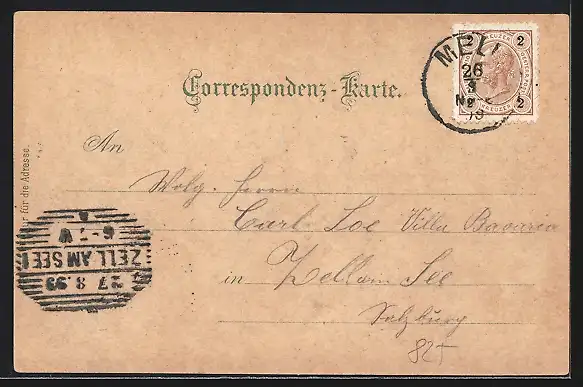 Correspondenz-Karte.
2 2
KREUZER
2 2
MEL
26
8
99
An
für die Adresse.
Wolg. Herrn
Carl Loe Villa Bavaria
in Zell am See
Salzburg
825
ZELL AM SEE
27 8 99
6-7 V
A